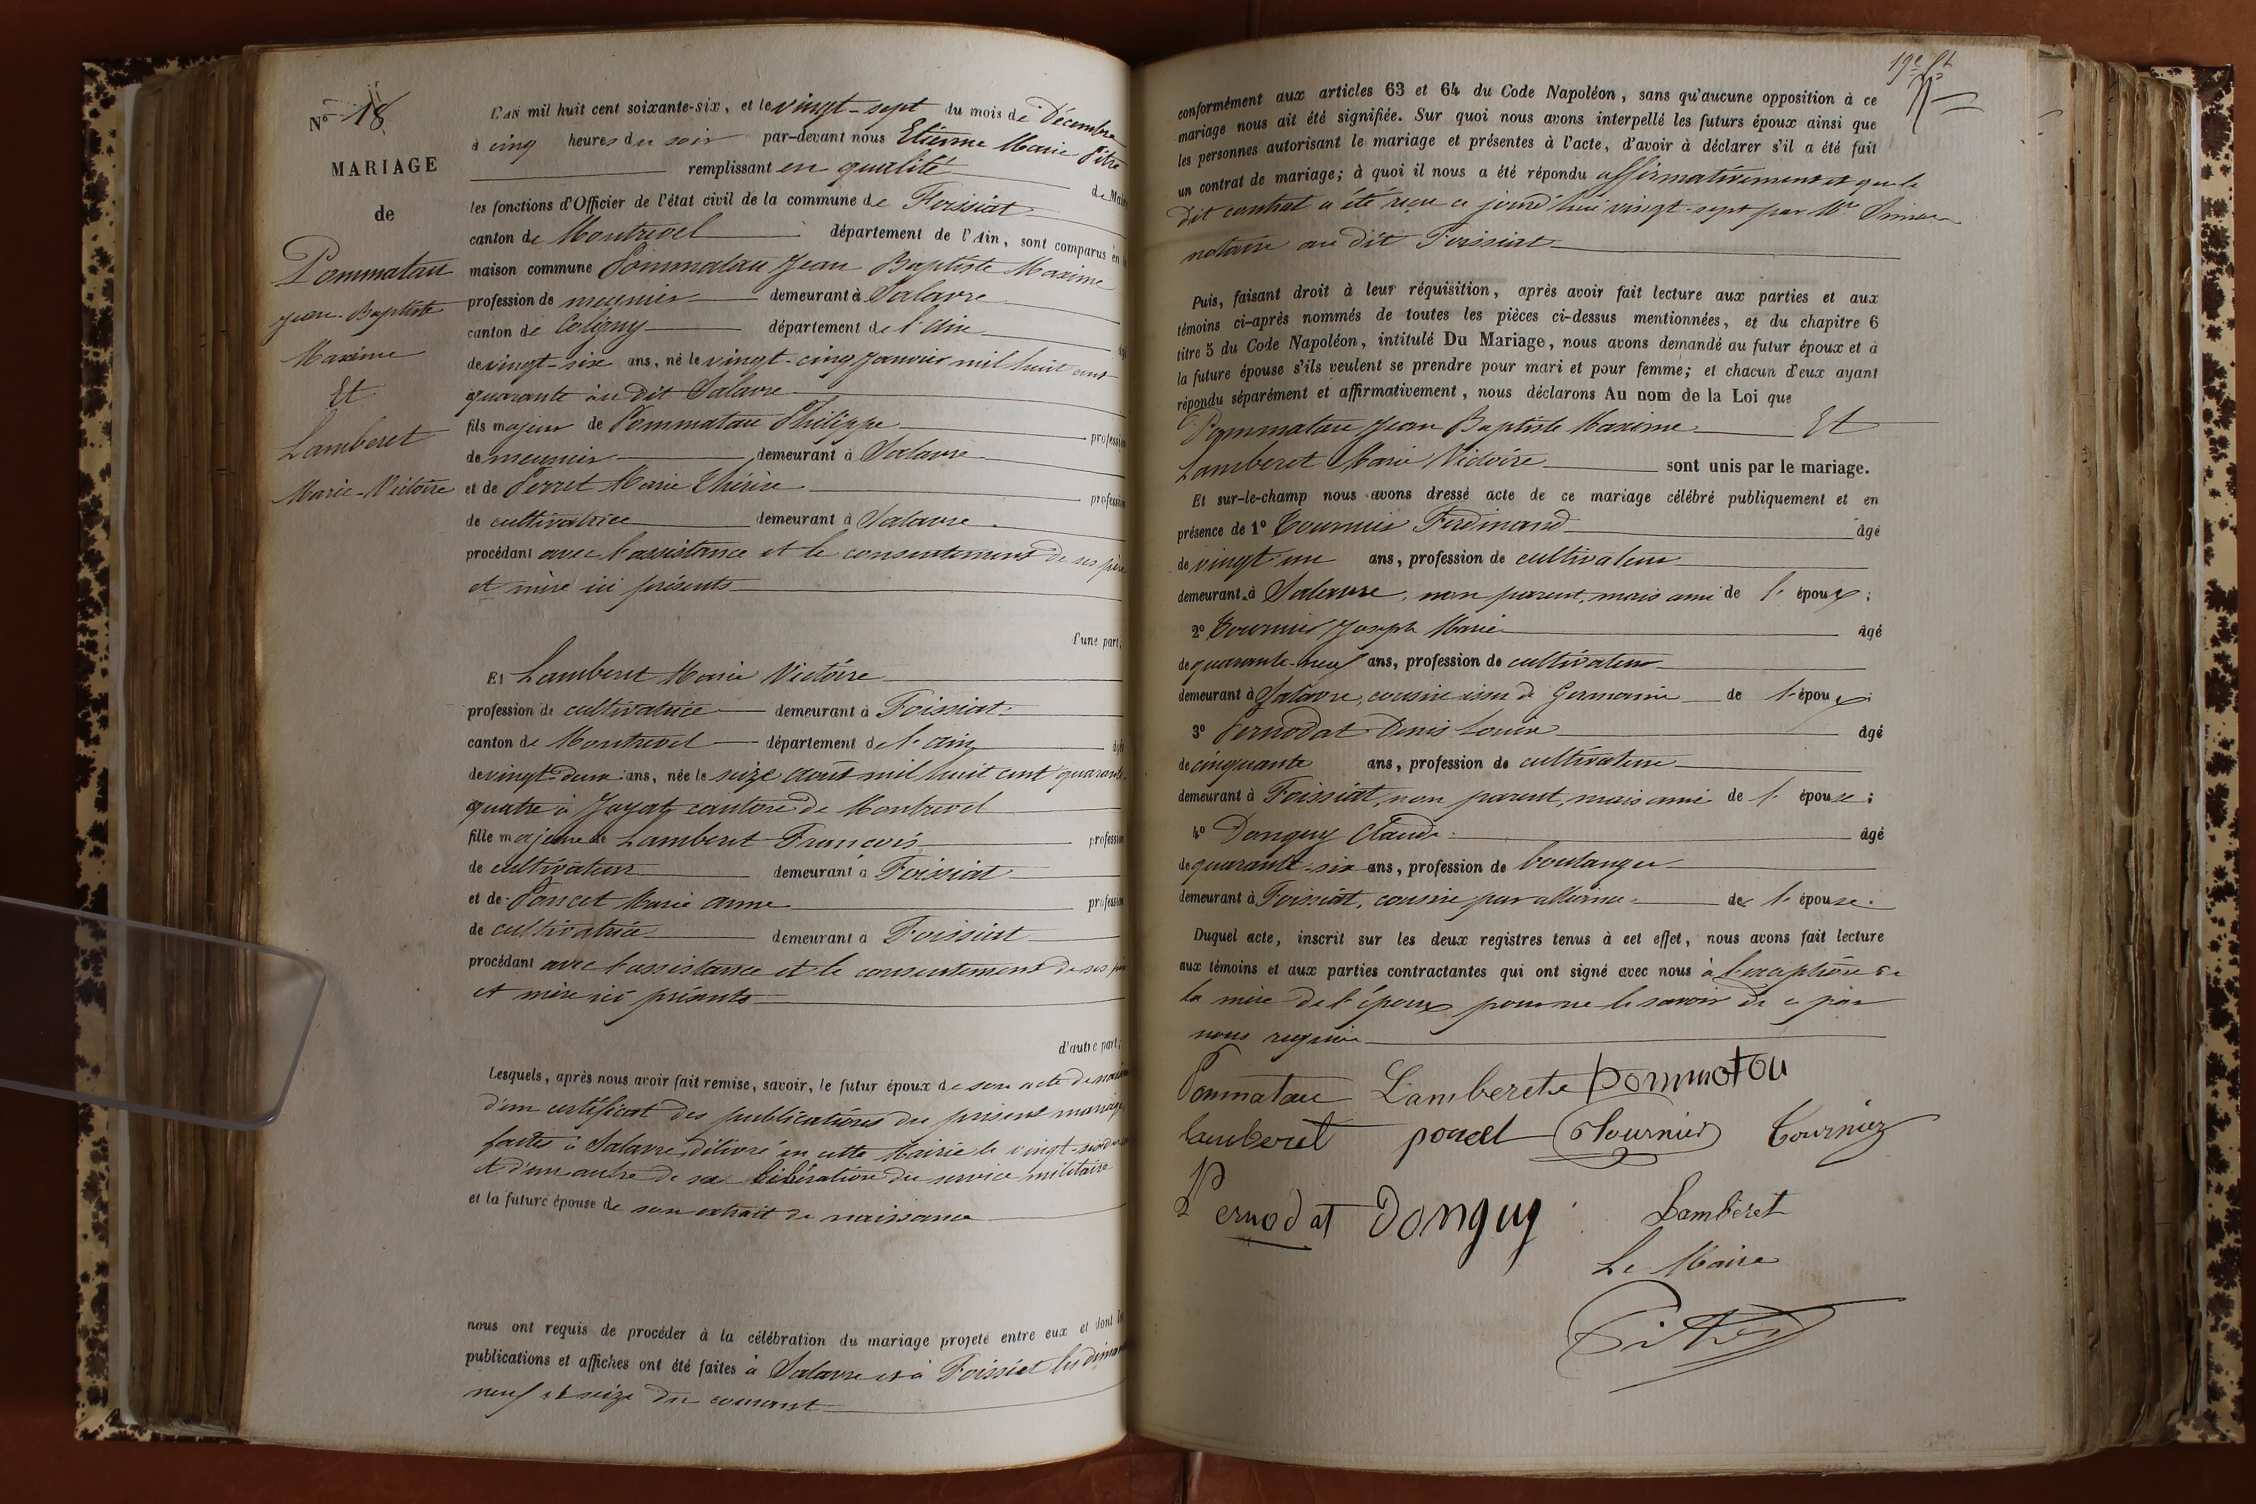 Nº 18
MARIAGE
de
Pommatau
Jean-Baptiste
Maxime
Et
Lamberet
Marie-Victoire
L'AN mil huit cent soixante-six, et le vingt-sept du mois de Décembre
à cinq heures du soir par-devant nous Etienne Marie Pitre
remplissant en qualité de Maire
les fonctions d'Officier de l'état civil de la commune de Foissiat
canton de Montrevel département de l'Ain, sont comparus en la
maison commune Pommatau Jean Baptiste Maxime
profession de meunier demeurant à Salavre
canton de Coligny département de l'ain
de vingt-six ans, né le vingt-cinq Janvier mil huit cent
quarante au dit Salavre
fils majeur de Pommatau Philippe profession
de meunier demeurant à Salavre
et de Perret Marie Thérèse profession
de cultivatrice demeurant à Salavre
procédant avec l'assistance et le consentement de ses père
et mère ici présents
d'une part,
Et Lamberet Marie Victoire
profession de cultivatrice demeurant à Foissiat
canton de Montrevel département de l'ain âgée
de vingt-deux ans, née le seize août mil huit cent quarante-
quatre à Jayat canton de Montrevel
fille majeure de Lamberet François profession
de cultivateur demeurant à Foissiat
et de Poncet Marie anne profession
de cultivatrice demeurant à Foissiat
procédant avec l'assistance et le consentement de ses père
et mère ici présents
d'autre part;
Lesquels, après nous avoir fait remise, savoir, le futur époux de son acte de naissance
d'un certificat des publications du présent mariage
faites à Salavre délivré en cette Mairie le vingt-six du
et d'un autre de sa libération du service militaire
et la future épouse de son extrait de naissance
nous ont requis de procéder à la célébration du mariage projeté entre eux et dont les
publications et affiches ont été faites à Salavre et à Foissiat les dimanches
neuf et seize du courant
19e ft
conformément aux articles 63 et 64 du Code Napoléon, sans qu'aucune opposition à ce
mariage nous ait été signifiée. Sur quoi nous avons interpellé les futurs époux ainsi que
les personnes autorisant le mariage et présentes à l'acte, d'avoir à déclarer s'il a été fait
un contrat de mariage; à quoi il nous a été répondu affirmativement et que le
dit contrat a été reçu ce jourd'hui vingt-sept par Me
notaire au dit Foissiat
Puis, faisant droit à leur réquisition, après avoir fait lecture aux parties et aux
témoins ci-après nommés de toutes les pièces ci-dessus mentionnées, et du chapitre 6
titre 5 du Code Napoléon, intitulé Du Mariage, nous avons demandé au futur époux et à
la future épouse s'ils veulent se prendre pour mari et pour femme; et chacun d'eux ayant
répondu séparément et affirmativement, nous déclarons Au nom de la Loi que
Pommatau Jean Baptiste Maxime Et
Lamberet Marie Victoire sont unis par le mariage.
Et sur-le-champ nous avons dressé acte de ce mariage célébré publiquement et en
présence de 1º Tournier Ferdinand âgé
de vingt un ans, profession de cultivateur
demeurant à Salavre, non parent, mais ami de l'époux;
2º Tournier Joseph Marie âgé
de quarante-neuf ans, profession de cultivateur
demeurant à Salavre, cousin issu de Germain de l'époux;
3º Pernodat Denis Louis âgé
de cinquante ans, profession de cultivateur
demeurant à Foissiat, non parent, mais ami de l'épouse;
4º Donguy Claude âgé
de quarante-six ans, profession de boulanger
demeurant à Foissiat, cousin par alliance de l'épouse.
Duquel acte, inscrit sur les deux registres tenus à cet effet, nous avons fait lecture
aux témoins et aux parties contractantes qui ont signé avec nous à l'exception de
la mère de l'époux pour ne le savoir de ce par
nous requise
Pommatau Lamberet pommatou
lamberet poncet Tournier Tournier
Pernodat Donguy Lamberet
Le Maire
Pitre